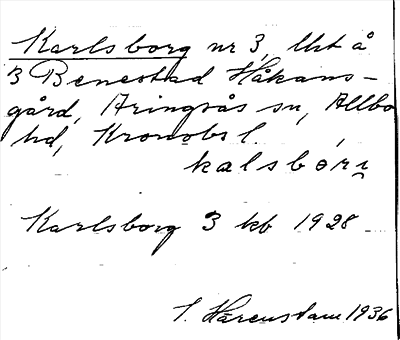 Karlsborg nr 3, Urt å
3 Benestad Håkans-
gård, Aringsås sn, Allbo
hd, Kronobs l.
kalsbóri
Karlsborg 3 kb 1928
S. Harenstam 1936